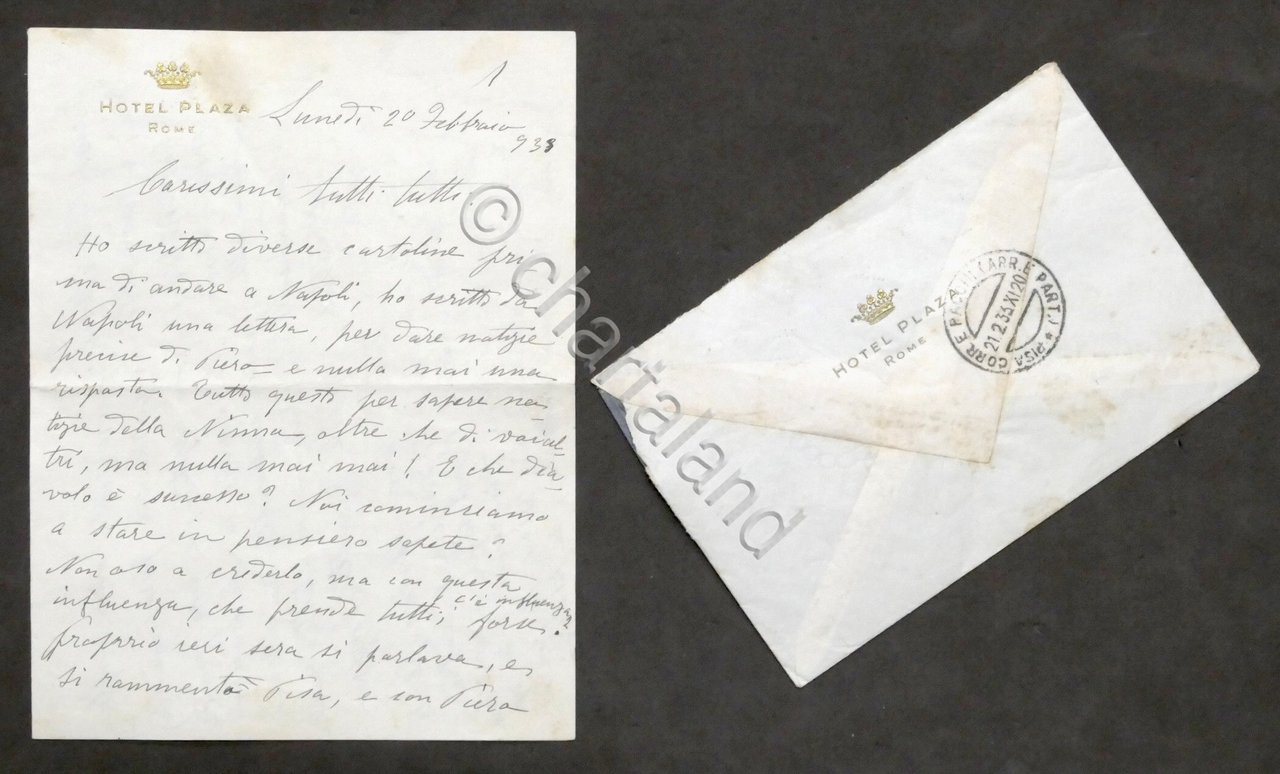 HOTEL PLAZA
ROME
1
Lunedì 20 Febbraio
933
Carissimi tutti tutti
Ho scritto diverse cartoline pri
ma di andare a Napoli, ho scritto da
Napoli una lettera, per dare notizie
precise di Piero = e nulla mai una
risposta. Tutto questo per sapere no
tizie della Ninna, oltre che di voi al-
tri, ma nulla mai mai! E che dia-
volo è successo? Noi cominciamo
a stare in pensiero sapete?
Non oso a crederlo, ma con questa
influenza, che prende tutti, c'è influenza
forse.
Proprio ieri sera si parlava, e
si rammentò Pisa, e con Piero
HOTEL PLAZA
ROME
PISA CORR E PACCHI (ARR. E PART.)
21.2.33.XI 20
© chartaland